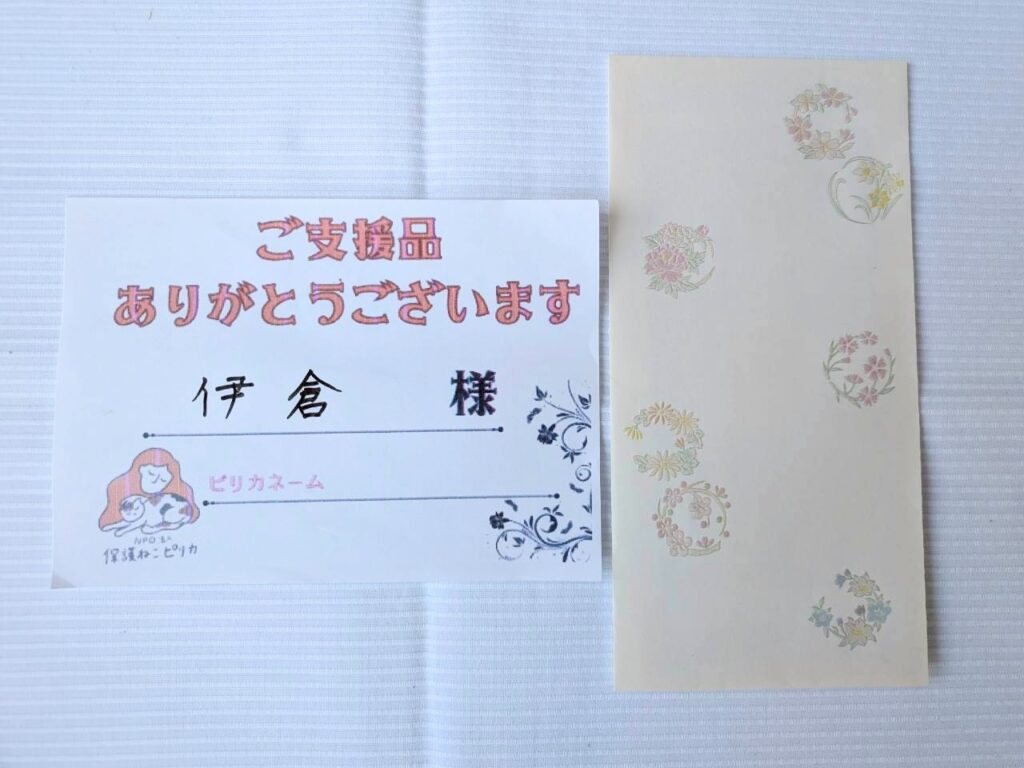 ご支援品
ありがとうございます
伊倉 様
ピリカネーム
NPO法人
保護ねこピリカ